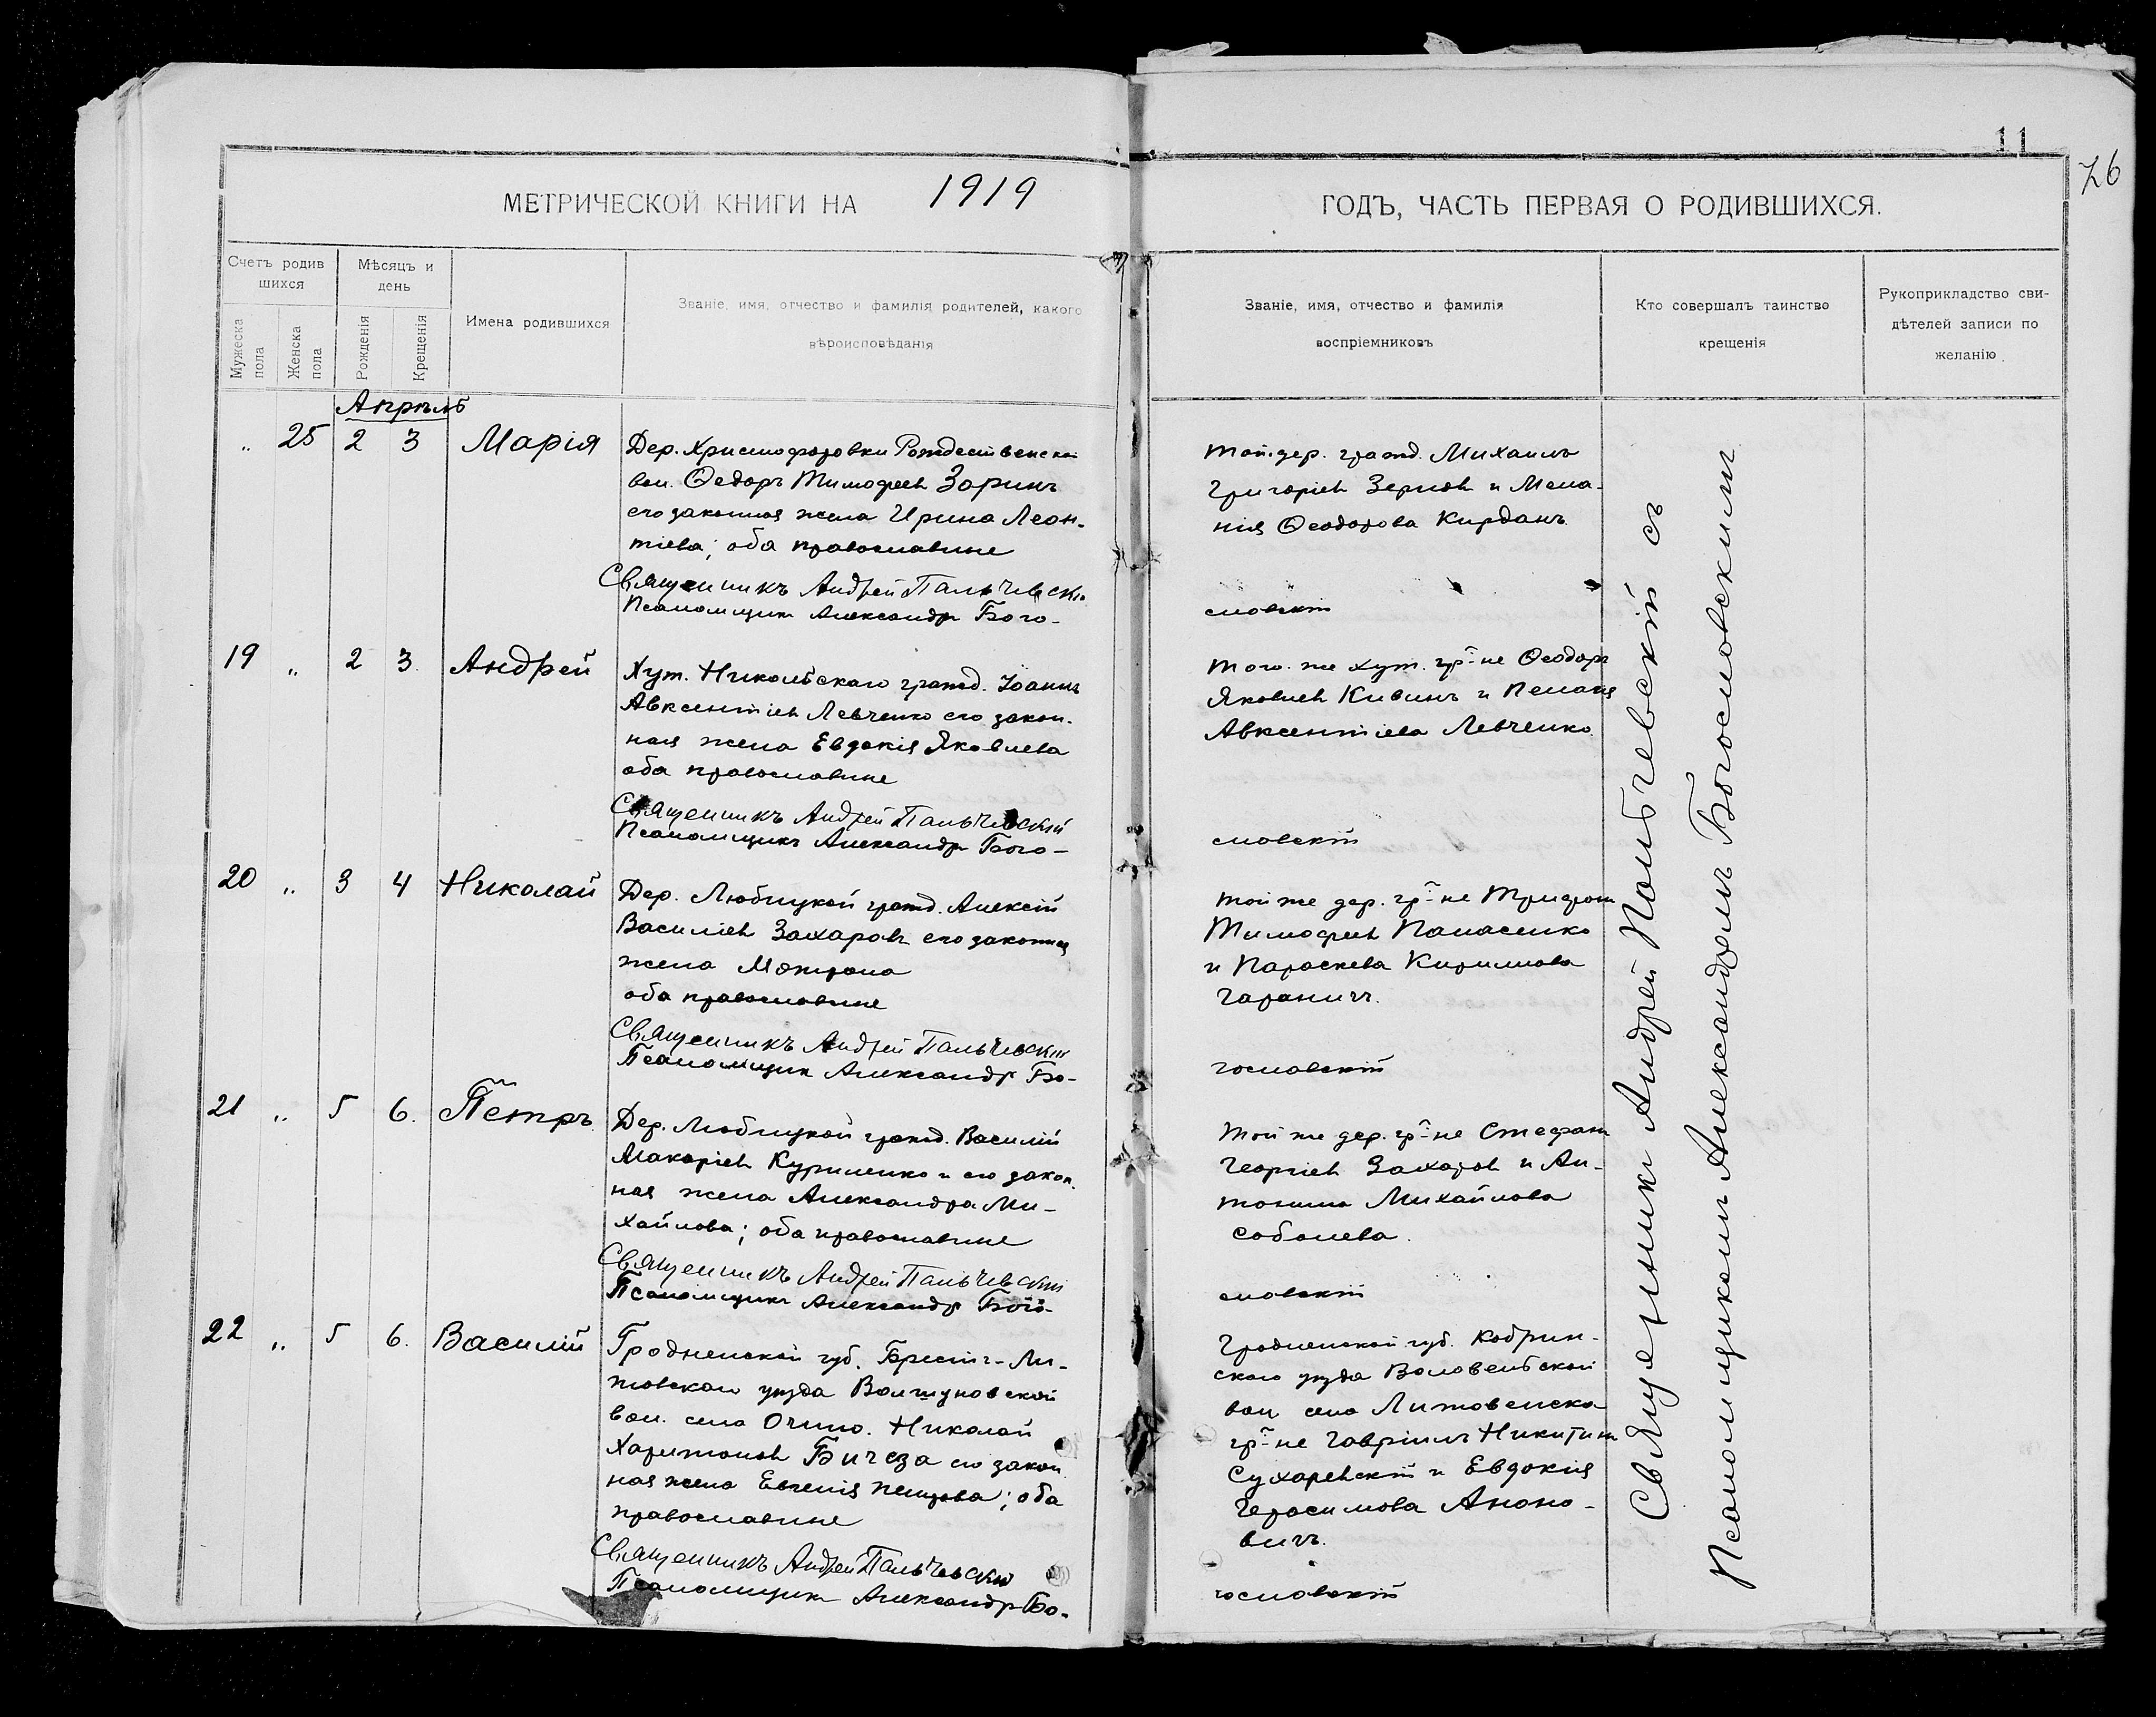 11
76
МЕТРИЧЕСКОЙ КНИГИ НА 1919
ГОДЪ, ЧАСТЬ ПЕРВАЯ О РОДИВШИХСЯ.
Счетъ родив
шихся
Мужеска пола
Женска пола
Мѣсяцъ и
день
Рожденія
Крещенія
Имена родившихся
Званіе, имя, отчество и фамилія родителей, какого
вѣроисповѣданія
Званіе, имя, отчество и фамилія
воспріемниковъ
Кто совершалъ таинство
крещенія
Рукоприкладство сви-
дѣтелей записи по
желанію.
Апрѣль
„ 25 2 3 Марія
Дер. Христофоровки Рождественской
вол. Ѳедоръ Тимофеев Зоринъ
его законная жена Ирина Леон-
тіева; оба православные
Священникъ Андрей Пальчевскій
Псаломщикъ Александръ Бого-
той дер. гражд. Михаилъ
Григоріев и Мела-
нія Ѳеодорова Кирданъ
словскій
19 „ 2 3. Андрей
Хут. Никольскаго гражд. Іоаннъ
Авксентіев Левченко его закон-
ная жена Евдокія Яковлева
оба православные
Священникъ Андрей Пальчевскій
Псаломщикъ Александръ Бого-
того же хут. гр-не Ѳеодоръ
Яковлев Кивинъ и Пелагія
Авксентіева Левченко
словскій
20 „ 3 4 Николай
Дер. Любицкой гражд. Алексій
Василіев Захаровъ его законная
жена Мокрона
оба православные
Священникъ Андрей Пальчевскій
Псаломщикъ Александръ Бо-
той же дер. гр-не Трифонъ
Тимофеев Панасенко
и Параскева Кириллова
Гараничъ.
гословскій
21 „ 5 6. Петръ
Дер. Любицкой гражд. Василій
Макаріев Куриленко и его закон.
ная жена Александра Ми-
хайлова; оба православные
Священникъ Андрей Пальчевскій
Псаломщикъ Александръ Бого-
той же дер. гр-не Стефанъ
Георгіев Захаров и Ан-
тонина Михайлова
Соболева.
словскій
22 „ 5 6. Василій
Гродненской губ. Брестъ-Ли-
товскаго уѣзда
вол. села Очино. Николай
Харитонов Бичеза его закон
ная жена Евгенія Петрова; оба
православные
Священникъ Андрей Пальчевскій
Псаломщикъ Александръ Бо-
Гродненской губ. Кобрин-
скаго уѣзда Воловельской
вол села Литовенска
гр-не Гавріилъ Никитинъ
Сухаревскій и Евдокія
Герасимова Аноно-
вичъ.
гословскій
Священникъ Андрей Пальчевскій съ
Псаломщикомъ Александромъ Богословскимъ